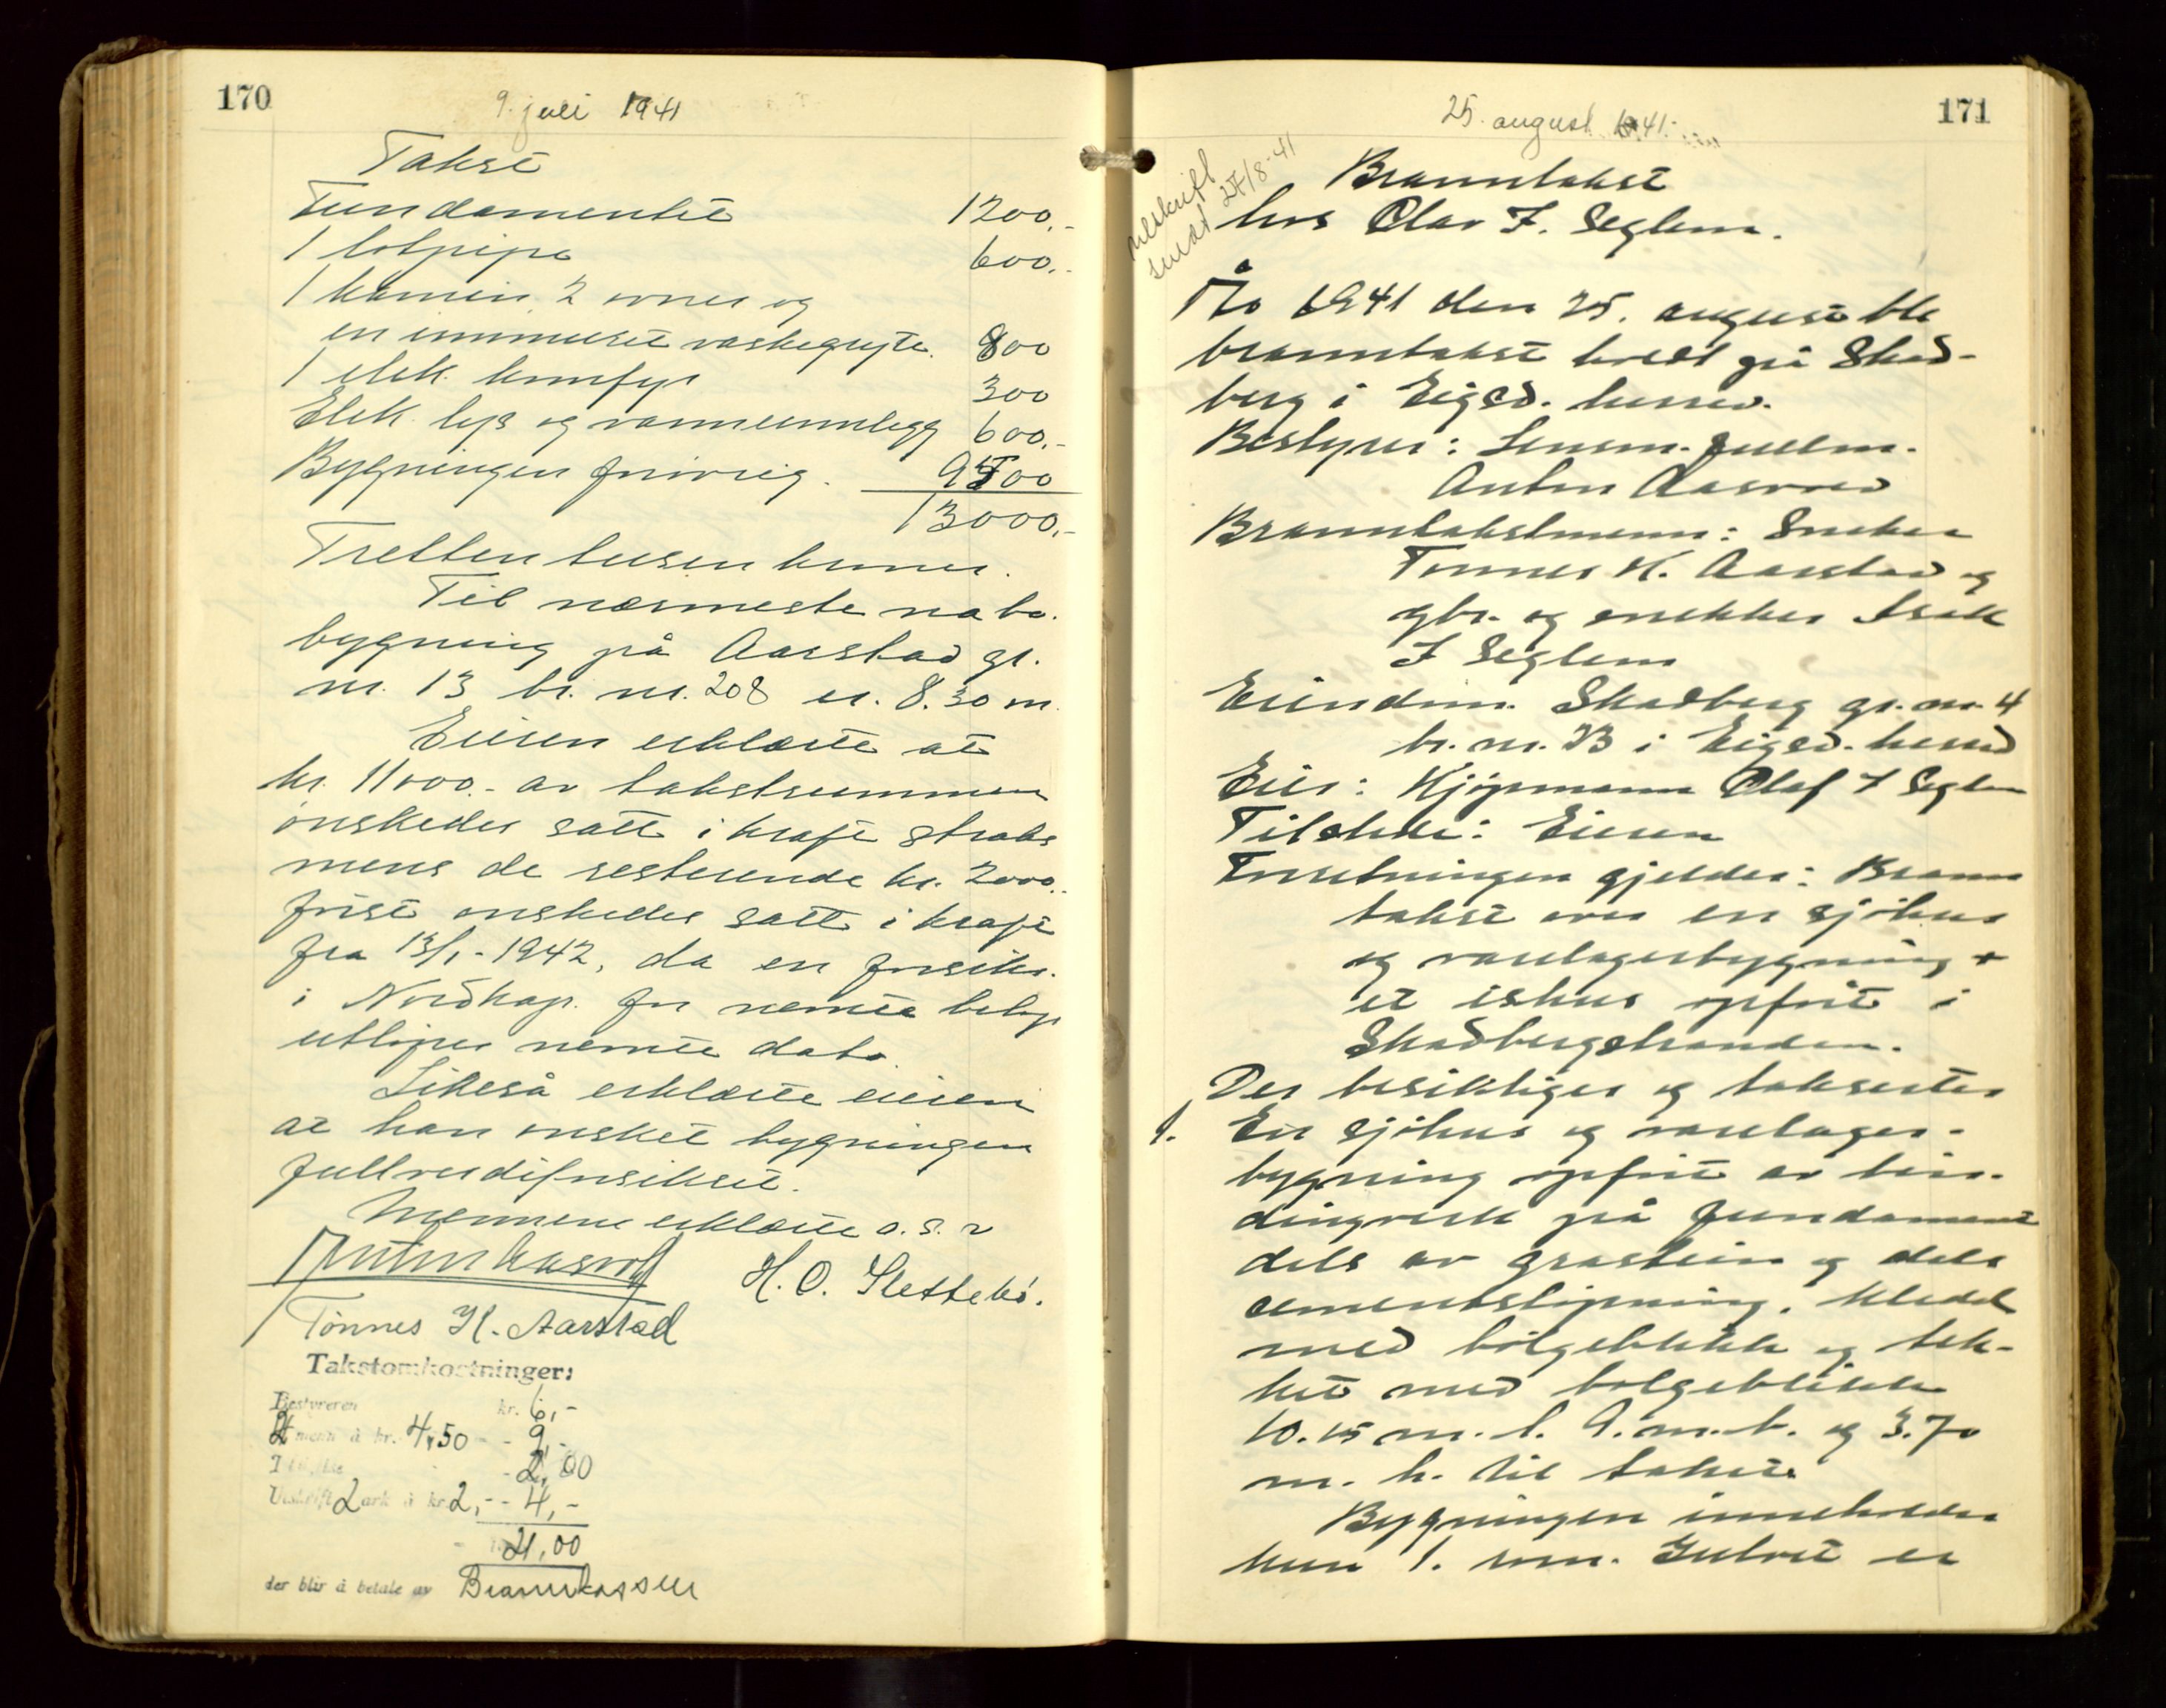 170
9. juli 1941
Takst
Fundamentet 1200.-
1 lotpipe 600.-
1 kamin, 2 ovner og
en innmuret vaskegryte. 800
1 elek. komfyr 300
Elek. lys og varmeinnlegg 600.-
Bygningen forøvrig. 9500
13000.-
Tretten tusen kroner.
Til nærmeste nabo.
bygning på Aarstad gr.
nr. 13 br. nr. 208 er. 8.30 m.
Eieren erklærte at
kr. 11000.- av takstsummen
ønskedes satt i kraft straks
mens de resterende kr. 2000.-
først ønskedes satt i kraft
fra 13/1-1942, da en forsikr.
i Nordkap. for nemte beløp
utløper nemte dato
Likeså erklærte eieren
at han ønsket bygningen
fullverdiforsikret.
Mennene erklærte o.s.v
Anton Aasrod
H. O. Slettebö.
Tönnes H. Aarstad
Takstomkostninger:
Bestyreren kr. 6,-
2 menn à kr. 4,50 - 9,-
- 2,00
Utskrift 2 ark à kr. 2,- - 4,-
21,00
der blir å betale av Brannkassen
171
25. august 1941.
utskrift
sendt 27/8-41
Branntakst
hos Olav F. Seglem.
År 1941 den 25. august ble
branntakst holdt på Skad-
berg i Eigsd. herred.
Bestyrer: Lensm. fullm.
Anton Aasrod
Branntakstmenn: Snekker
Tønnes H. Aarstad og
gbr. og snekker Isak
F Seglem
Eiendom. Skadberg gr. nr. 4
br. nr. 13 i Eigsd. herred
Eier: Kjøpmann Olaf F Seglem
Tilstede: Eieren
Forretningen gjelder: Brann
takst over en sjöhus
og varelagerbygning +
et ishus opført i
Skadbergstranden.
Der besiktiges og takseres
1. En sjöhus og varelager-
bygning opført av bin-
dingverk på fundament
dels av gråstein og dels
cementstøpning. Kledd
med bölgeblikk og tek-
ket med bölgeblikk
10.15 m. l. 9. m. b. og 3.70
m. h. til takset
Bygningen inneholder
kun 1. rom. Gulvet er